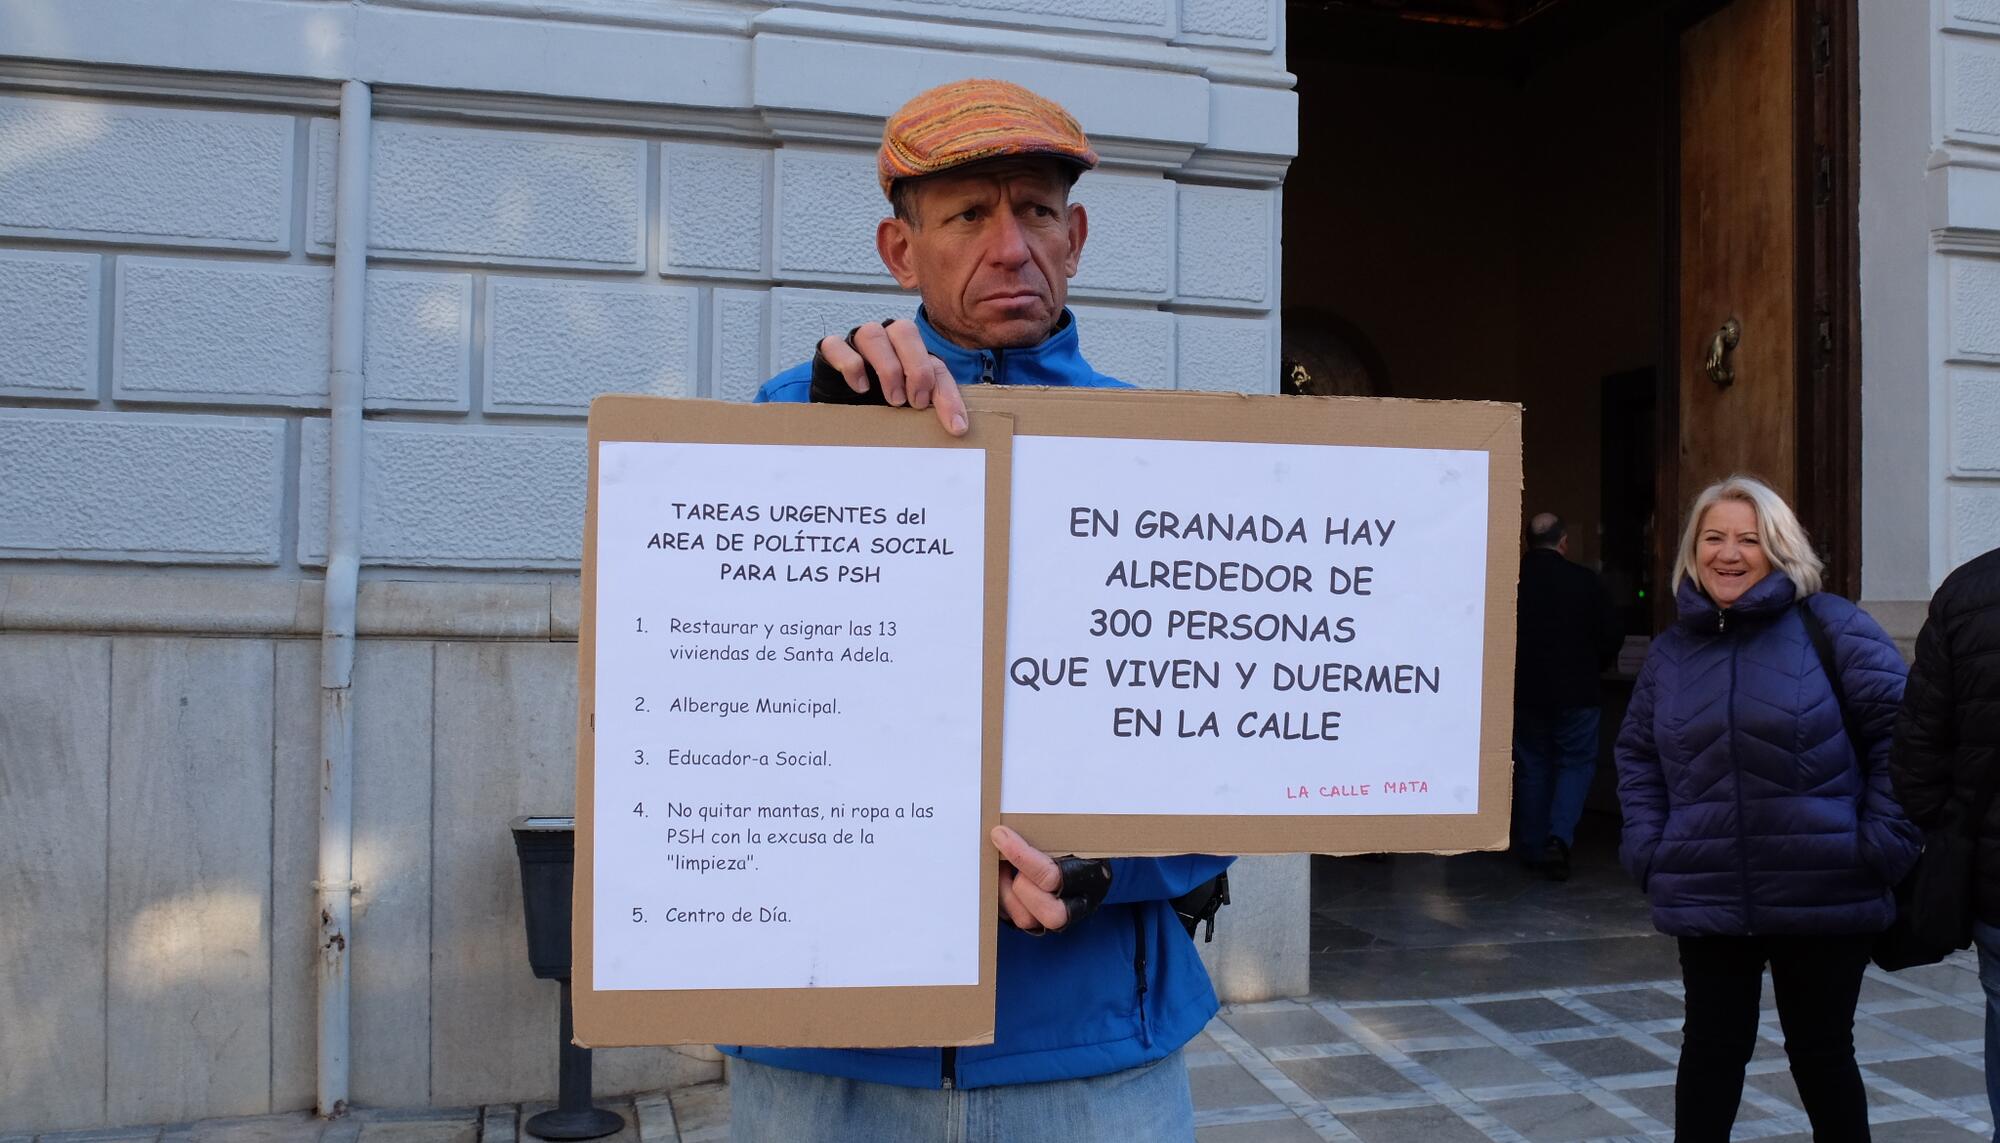 TAREAS URGENTES del
AREA DE POLÍTICA SOCIAL
PARA LAS PSH
1. Restaurar y asignar las 13
viviendas de Santa Adela.
2. Albergue Municipal.
3. Educador-a Social.
4. No quitar mantas, ni ropa a las
PSH con la excusa de la
"limpieza".
5. Centro de Día.
EN GRANADA HAY
ALREDEDOR DE
300 PERSONAS
QUE VIVEN Y DUERMEN
EN LA CALLE
LA CALLE MATA